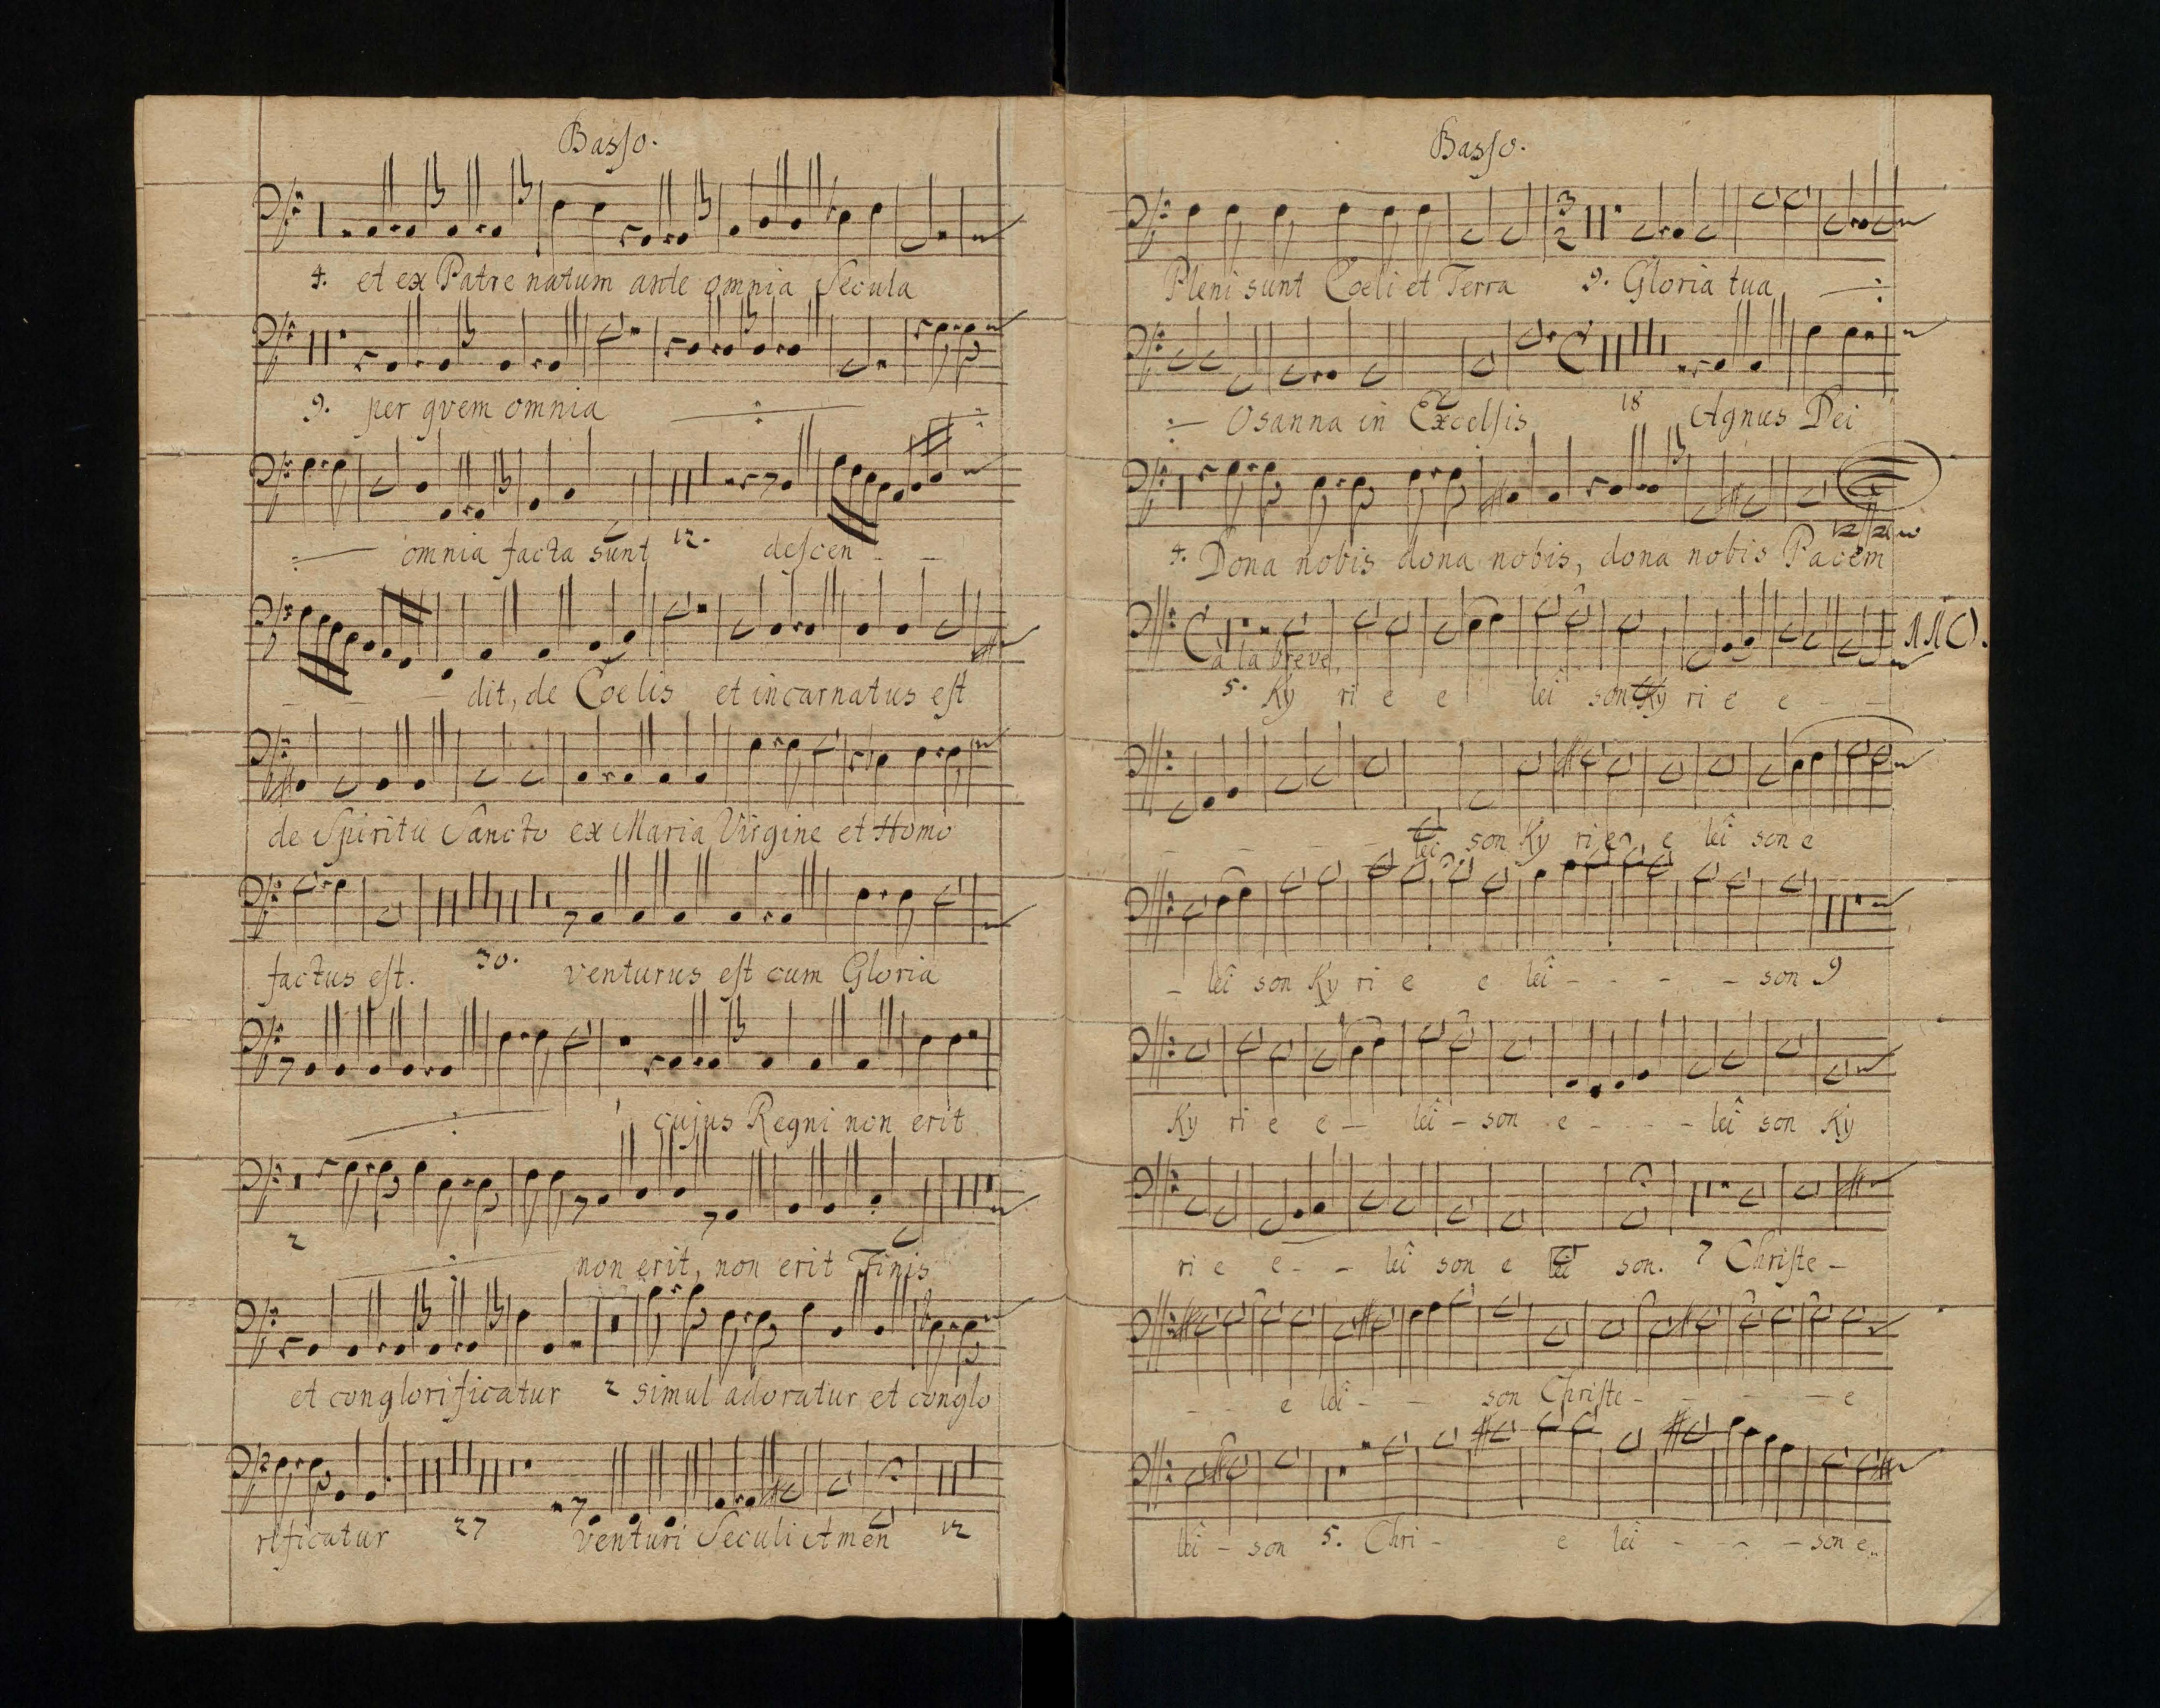 Basso.
4. et ex Patre natum ante omnia Secula
9. per qvem omnia
omnia facta sunt 12. descen - -
- - - dit, de Coelis et incarnatus est
de Spiritu Sancto ex Maria Virgine et Homo
factus est. 30. venturus est cum Gloria
1 cujus Regni non erit
2 non erit, non erit Finis
et conglorificatur 2 simul adoratur et conglo
rificatur 27 venturi Seculi Amen 12
Basso.
3
2
Pleni sunt Coeli et Terra 9. Gloria tua
Osanna in Excelsis 18 Agnus Dei
4. Dona nobis dona nobis, dona nobis Pacem
a la breve.
5. Ky ri e e lei son Ky ri e e - -
- - - - lei son Ky ri e e lei son e
- lei son Ky ri e e lei - - - - son 9
Ky ri e e - lei - son e - - - - lei son Ky
ri e e - - lei son e lei son. 7 Christe -
- - e lei - - son Christe - - - - e
lei - son 5. Chri - e lei - - - - son e